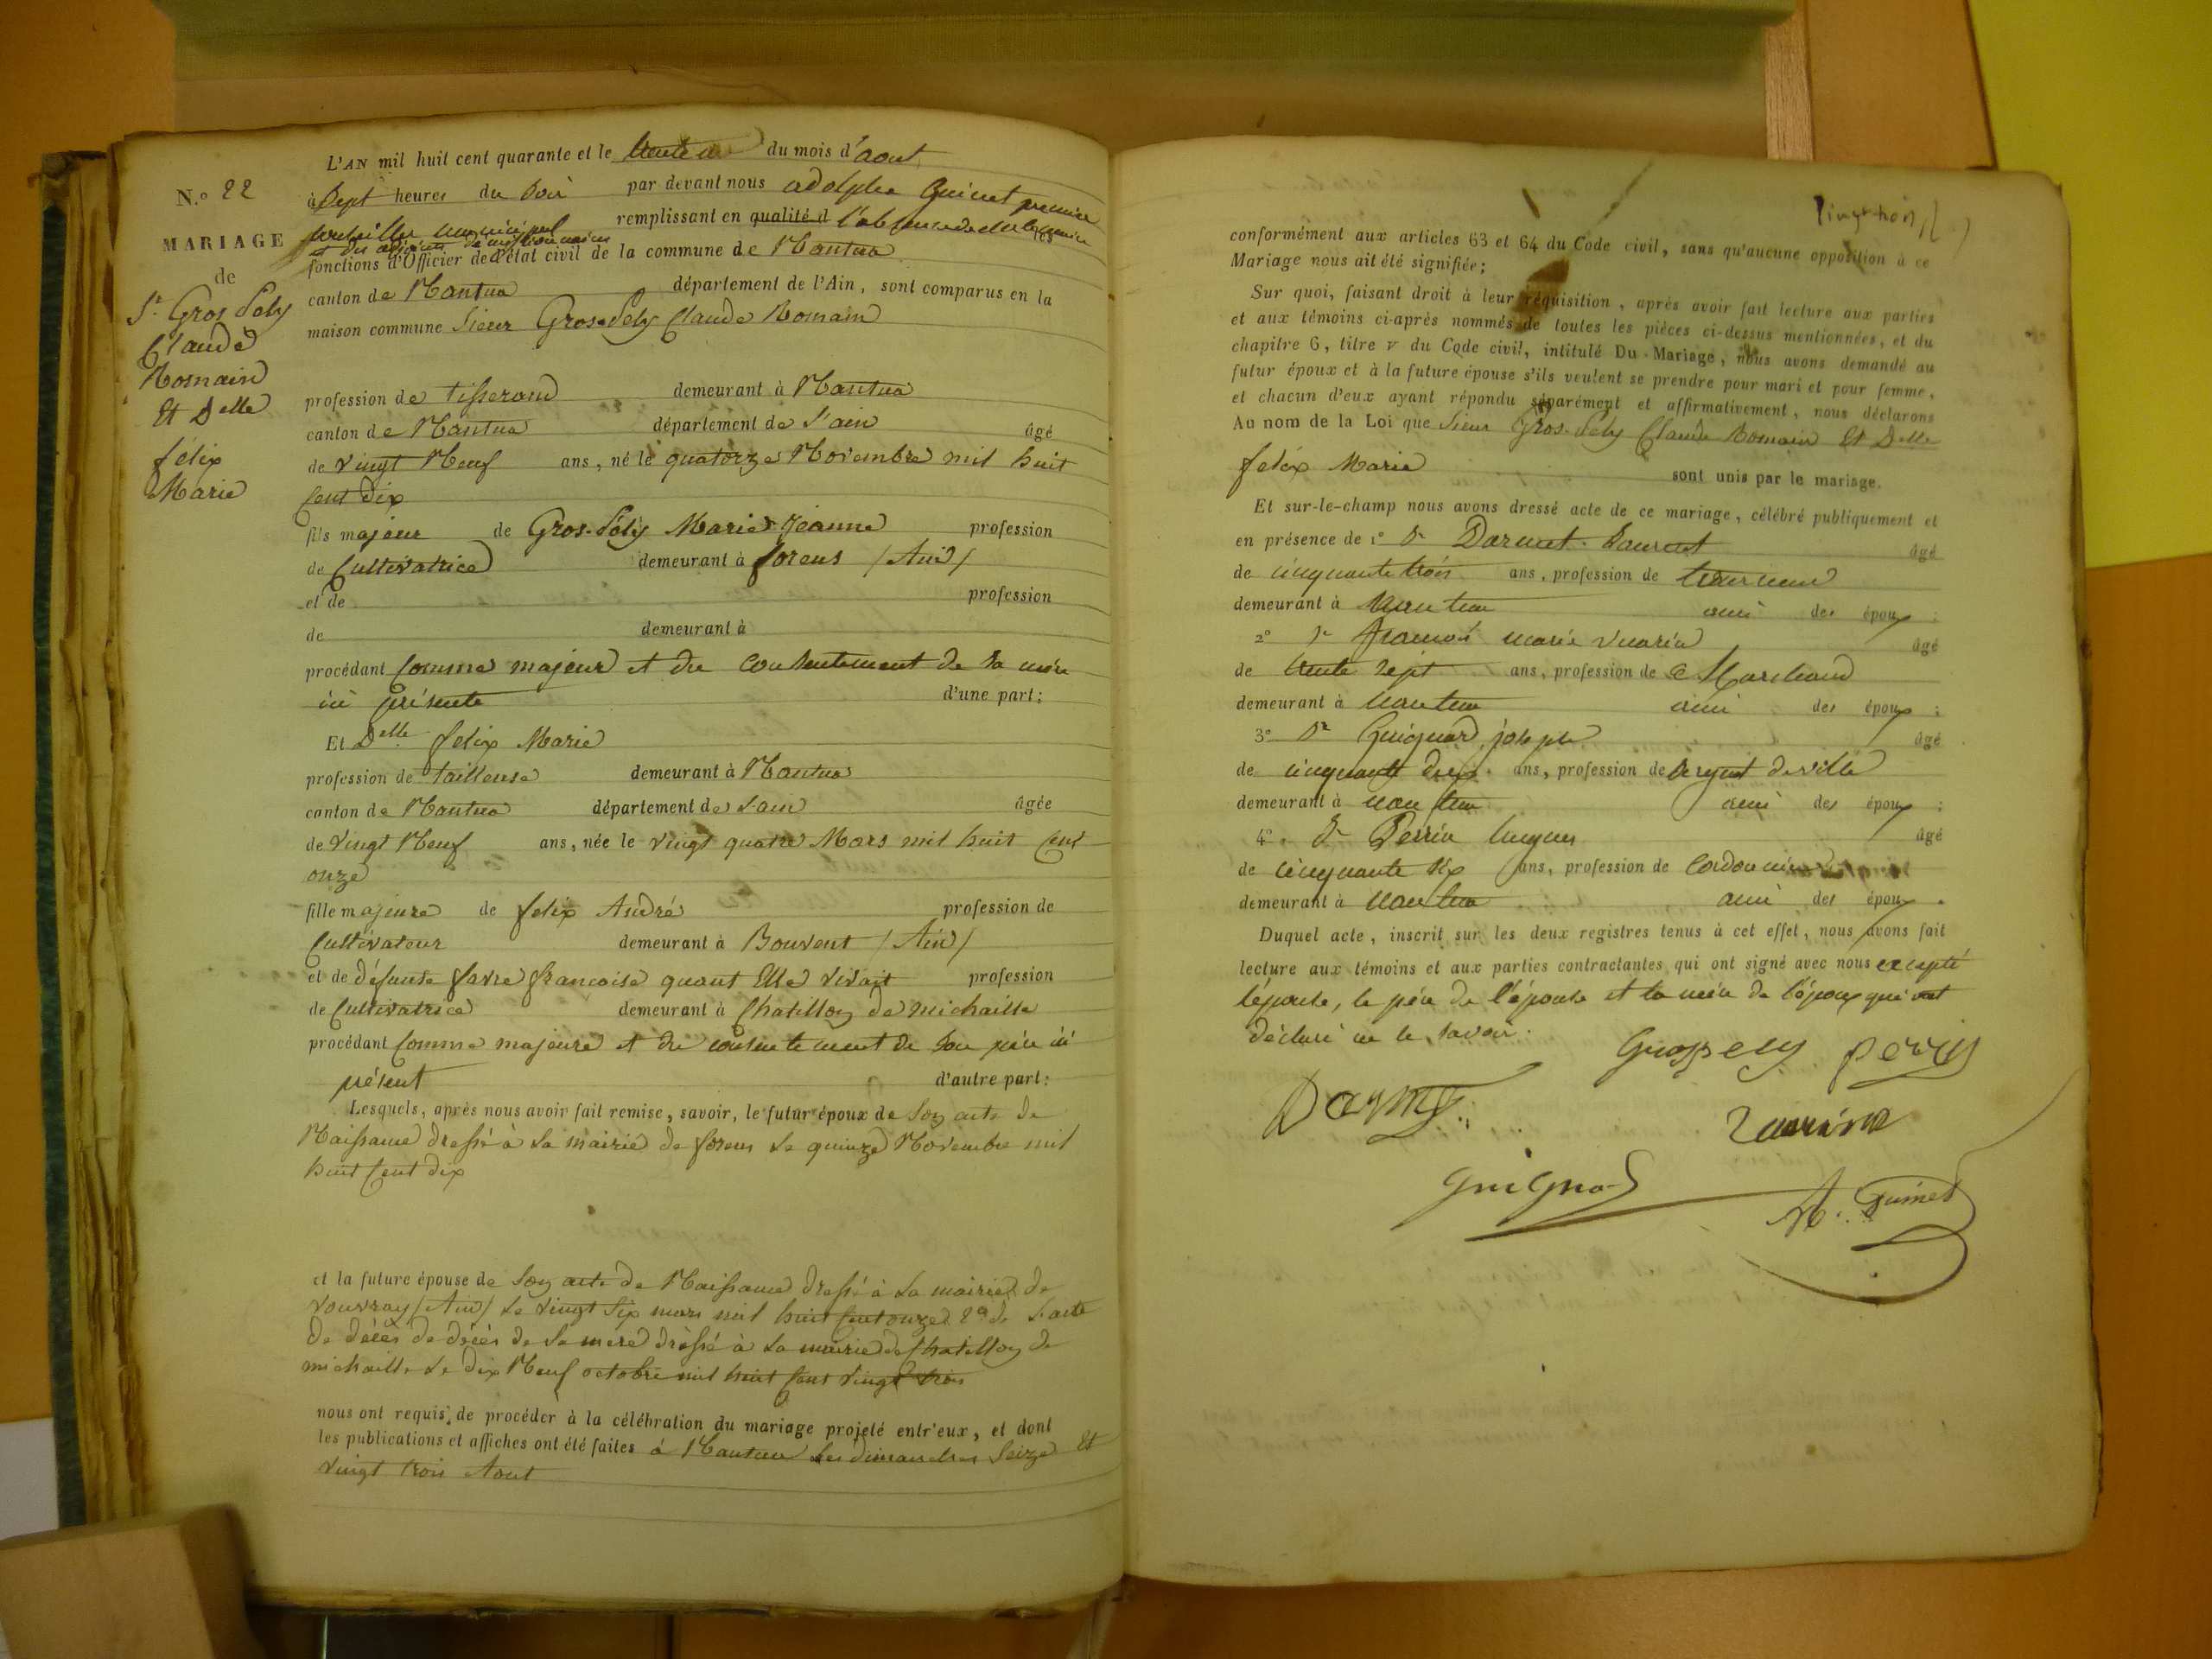 N.º 22
MARIAGE
de
Sr. Gros Pely
Claude
Romain
Et Delle
félix
Marie
L'AN mil huit cent quarante et le trente un du mois d'aout
à Sept heures du Soir par devant nous adolphe Guinet premier
conseiller municipal remplissant en qualité d l'absence de
et des adjoints démissionnaires les
fonctions d'Officier de l'état civil de la commune de Nantua
canton de Nantua département de l'Ain, sont comparus en la
maison commune Sieur Gros-Pely Claude Romain
profession de tisserand demeurant à Nantua
canton de Nantua département de l'ain âgé
de vingt Neuf ans, né le quatorze Novembre mil huit
Cent dix
fils majeur de Gros-Pély Marie Jeanne profession
de Cultivatrice demeurant à forens /Ain/
et de profession
de demeurant à
procédant Comme majeur et du consentement de sa mère
ici présente d'une part:
Et Delle felix Marie
profession de tailleuse demeurant à Nantua
canton de Nantua département de l'ain âgée
de Vingt Neuf ans, née le vingt quatre Mars mil huit Cent
onze
fille majeure de felix André profession de
Cultivateur demeurant à Bouvent /Ain/
et de défunte favre françoise quant Elle vivait profession
de Cultivatrice demeurant à Chatillon de michaille
procédant Comme majeure et du consentement de son père ici
présent d'autre part:
Lesquels, après nous avoir fait remise, savoir, le futur époux de Son acte de
Naissance dressé à la mairie de forens le quinze Novembre mil
huit Cent dix
et la future épouse de Son acte de Naissance dressé à la mairie de
vouvray /Ain/ le vingt Six mars mil huit Cent onze 2º de l'acte
de décès de décès de sa mere dressé à la mairie de Chatillon de
michaille le dix Neuf octobre mil huit Cent vingt trois
nous ont requis de procéder à la célébration du mariage projeté entr'eux, et dont
les publications et affiches ont été faites à Nantua les dimanches Seize Et
vingt trois Aout
conformément aux articles 63 et 64 du Code civil, sans qu'aucune opposition à ce
Mariage nous ait été signifiée;
Sur quoi, faisant droit à leur réquisition, après avoir fait lecture aux parties
et aux témoins ci-après nommés de toutes les pièces ci-dessus mentionnées, et du
chapitre 6, titre v du Code civil, intitulé Du Mariage, nous avons demandé au
futur époux et à la future épouse s'ils veulent se prendre pour mari et pour femme,
et chacun d'eux ayant répondu séparément et affirmativement, nous déclarons
Au nom de la Loi que Sieur Gros-Pely Claude Romain Et Delle
felix Marie sont unis par le mariage.
Et sur-le-champ nous avons dressé acte de ce mariage, célébré publiquement et
en présence de 1º Sr Darmet Laurent âgé
de cinquante trois ans, profession de
demeurant à Nantua ami des époux;
2º Sr françois marie âgé
de trente sept ans, profession de Marchand
demeurant à nantua ami des époux;
3º Sr Guignard joseph âgé
de cinquante deux ans, profession de sergent de ville
demeurant à nantua ami des époux;
4º Sr Perrin âgé
de cinquante six ans, profession de Cordonnier
demeurant à nantua ami des époux.
Duquel acte, inscrit sur les deux registres tenus à cet effet, nous avons fait
lecture aux témoins et aux parties contractantes qui ont signé avec nous excepté
l'épouse, le père de l'épouse et la mère de l'époux qui ont
déclaré ne le savoir.
Grospely perrin
Darmet
Guignard
A. Guinet